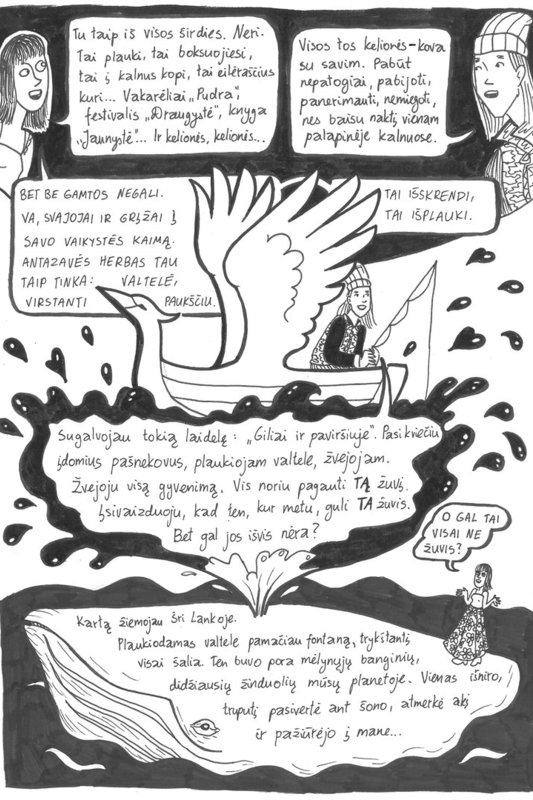 Tu taip iš visos širdies. Neri.
Tai plauki, tai boksuojiesi,
tai į kalnus kopi, tai eilėraščius
kuri... Vakarėliai „Pudra“,
festivalis „Draugystė“, knyga
„Jaunystė“... Ir kelionės, kelionės...
Visos tos kelionės-kova
su savim. Pabūt
nepatogiai, pabijoti,
panerimauti, nemiegoti,
nes baisu naktį vienam
palapinėje kalnuose.
BET BE GAMTOS NEGALI.
VA, SVAJOJAI IR GRĮŽAI Į
SAVO VAIKYSTĖS KAIMĄ.
ANTAZAVĖS HERBAS TAU
TAIP TINKA: VALTELĖ,
VIRSTANTI PAUKŠČIU.
TAI IŠSKRENDI,
TAI IŠPLAUKI.
Sugalvojau tokią laidelę: „Giliai ir paviršiuje“. Pasikviečiu
įdomius pašnekovus, plaukiojam valtele, žvejojam.
Žvejoju visą gyvenimą. Vis noriu pagauti TĄ žuvį.
Įsivaizduoju, kad ten, kur metu, guli TA žuvis.
Bet gal jos išvis nėra?
O GAL TAI
VISAI NE
ŽUVIS?
Kartą žiemojau Šri Lankoje.
Plaukiodamas valtele pamačiau fontaną, trykštantį
visai šalia. Ten buvo pora mėlynųjų banginių,
didžiausių žinduolių mūsų planetoje. Vienas išniro,
truputį pasivertė ant šono, atmerkė akį
ir pažiūrėjo į mane...